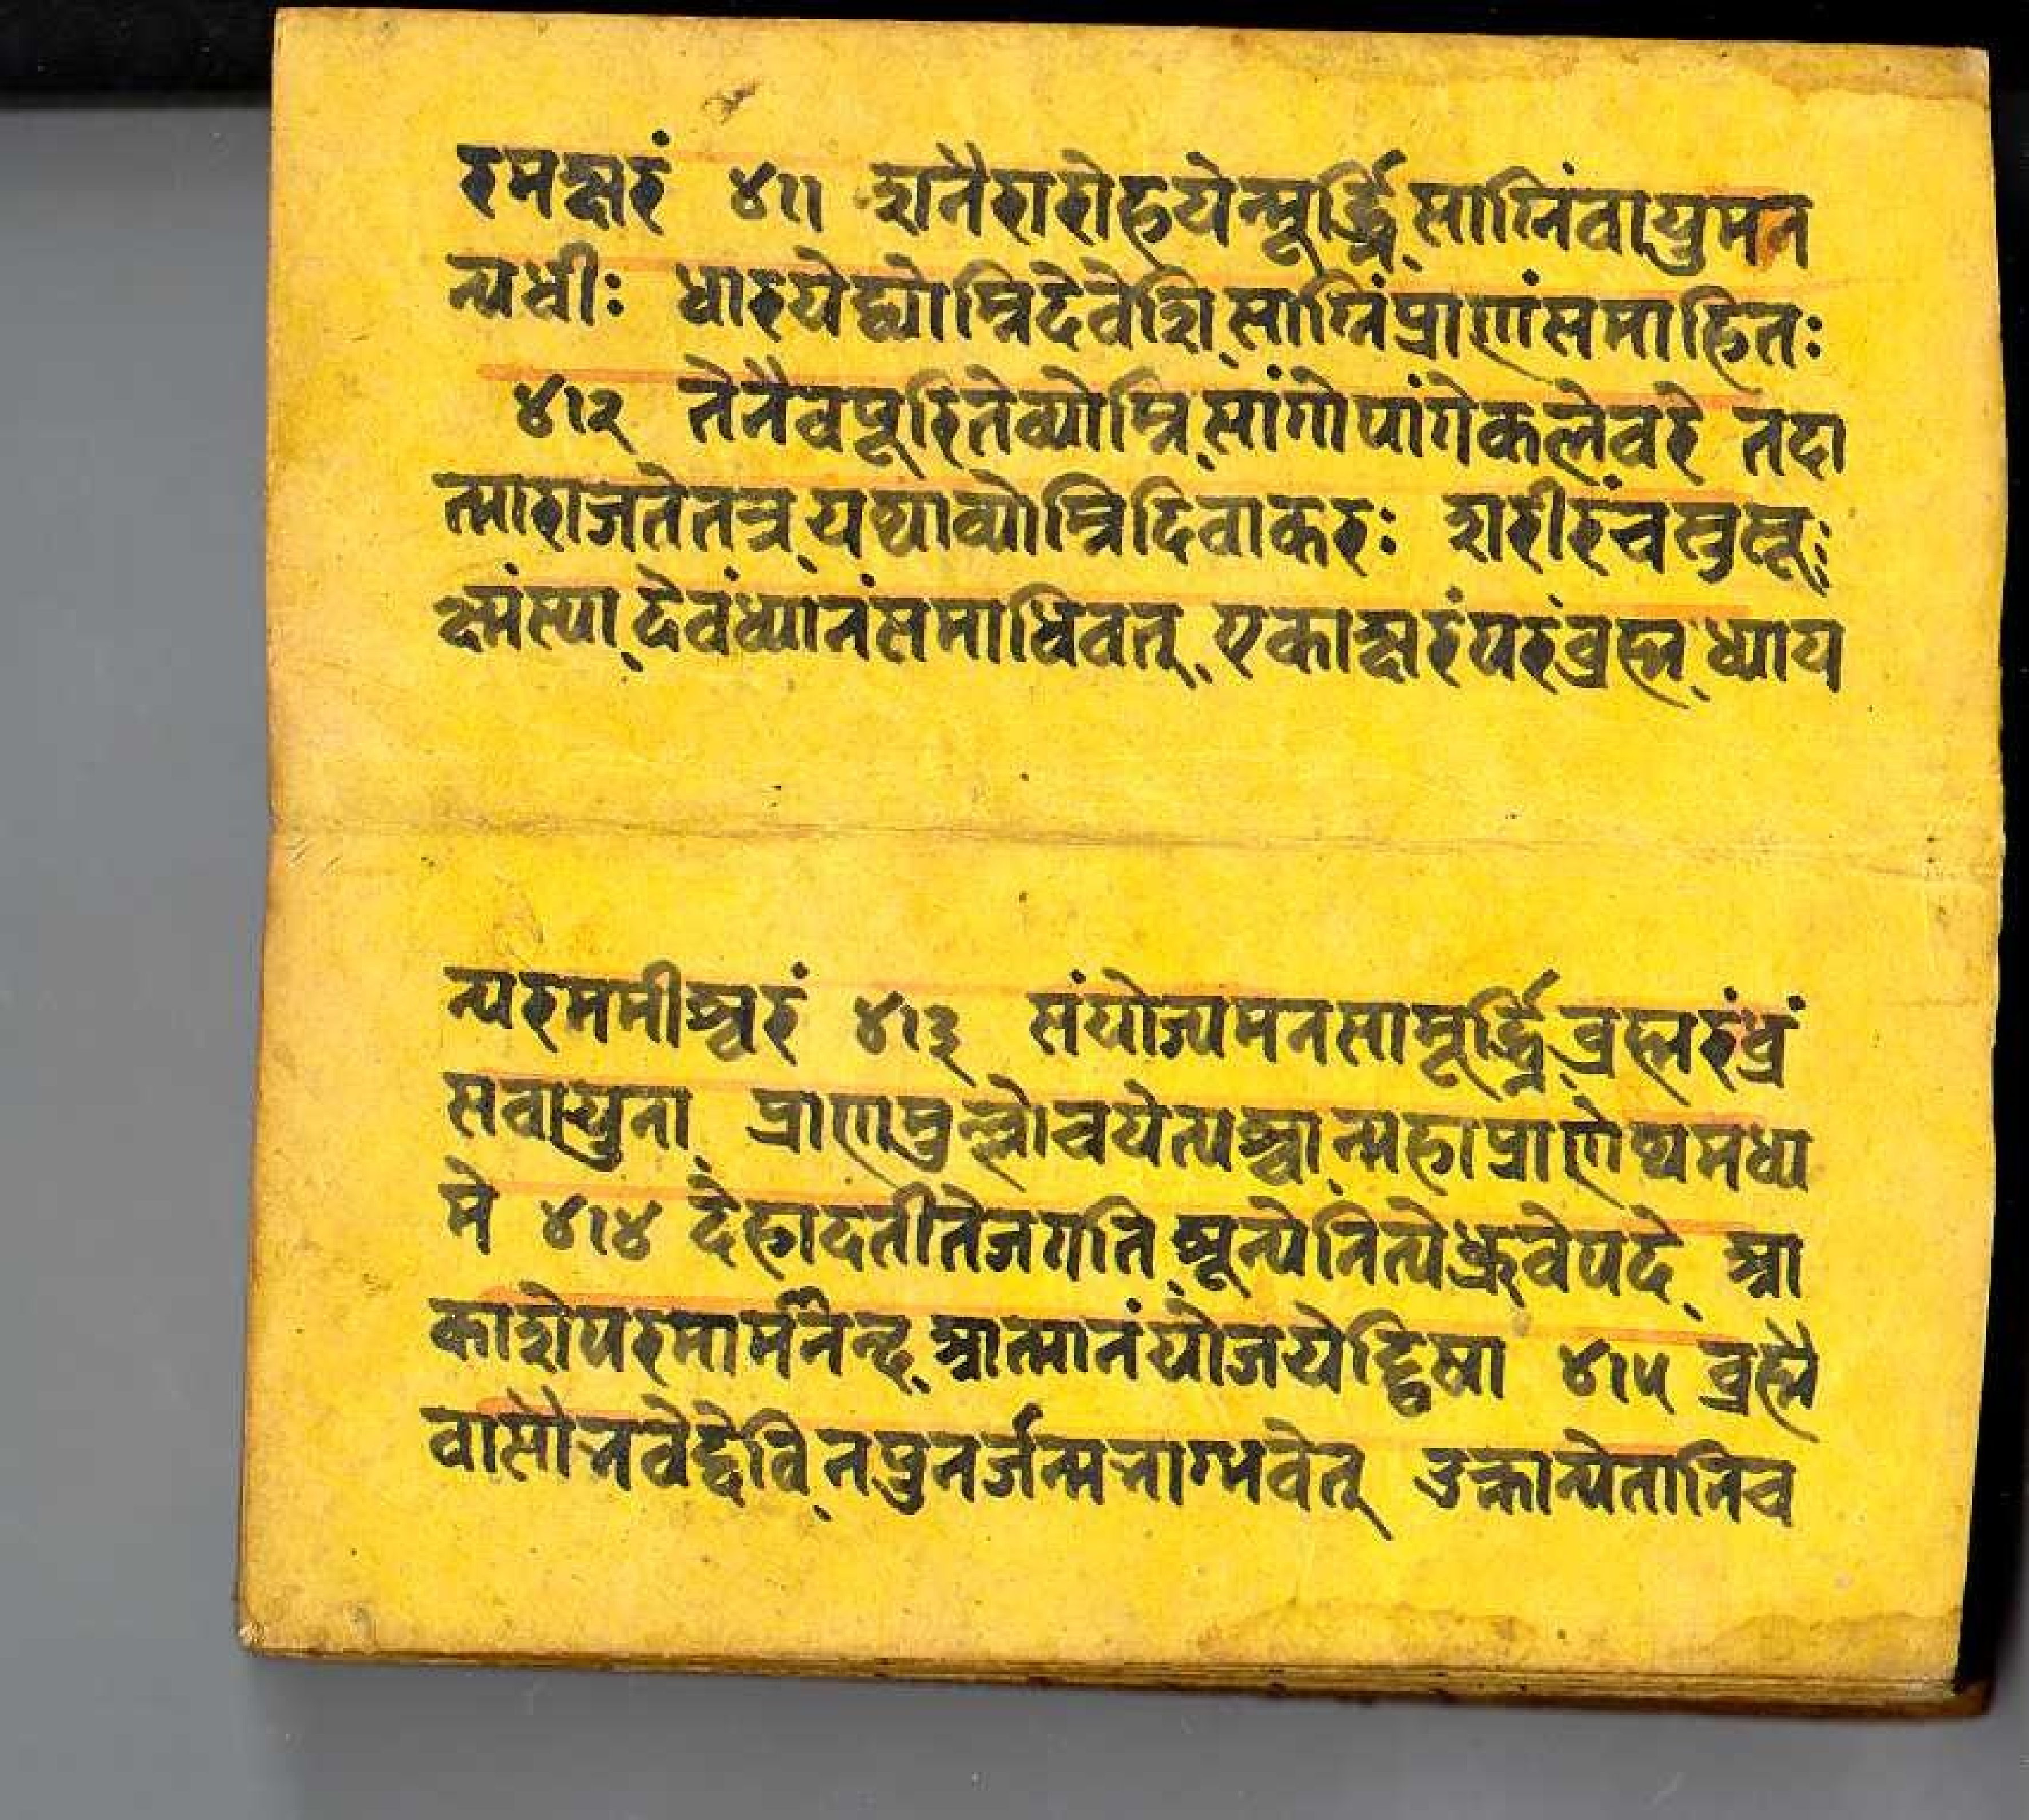 रमक्षरं ४११ शनैरारोहयेन्मूर्द्ध्नि साग्निंवायुमन
न्यधीः धारयेद्व्योम्निदेवेशि साग्निंप्राणंसमाहितः
४१२ तेनैवपूरितेव्योम्नि सांगोपांगेकलेवरे तदा
त्माराजतेतत्र यथाव्योम्निदिवाकरः शरीरंचसुसू
क्ष्मंस्या देवंध्यानंसमाधिवत् एकाक्षरंपरंब्रह्म ध्याय
न्परममीश्वरं ४१३ संयोज्यमनसामूर्द्ध्नि ब्रह्मरंध्रं
सवायुना प्राणमुन्मोचयेत्पश्चा न्महाप्राणेथमध्य
मे ४१४ देहादतीतेजगति शून्येनित्येध्रुवेपदे आ
काशेपरमानन्द आत्मानंयोजयेद्धिया ४१५ ब्रह्मै
वासौभवेद्देवि नपुनर्जन्मभाग्भवेत् उक्तान्येतानिच